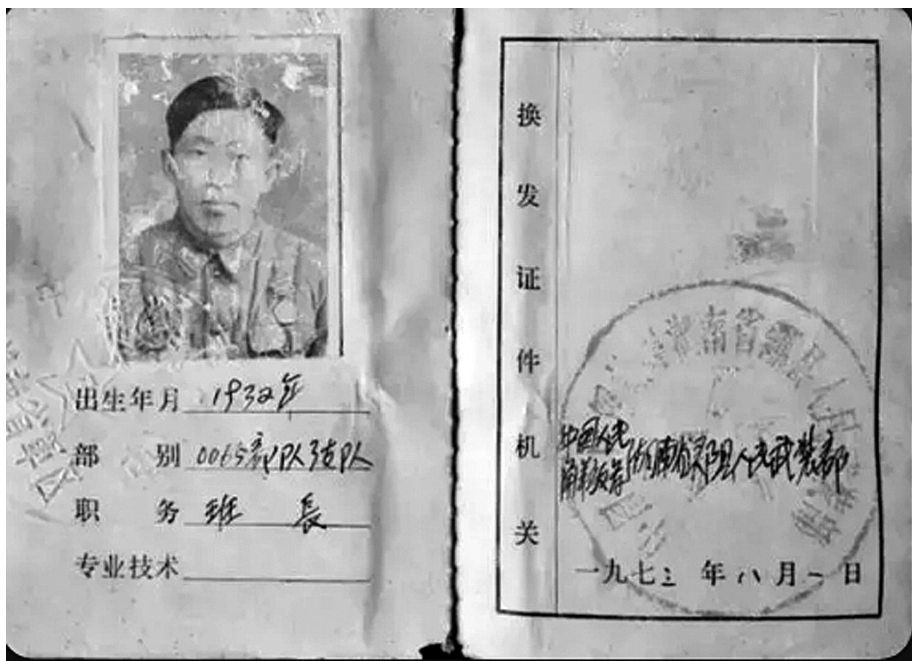 出生年月 1932年
部别 0065部队3支队
职务 班長
专业技术
换发证件机关
中国人民
解放军湖南省酃县人民武装部
一九七三年八月一日